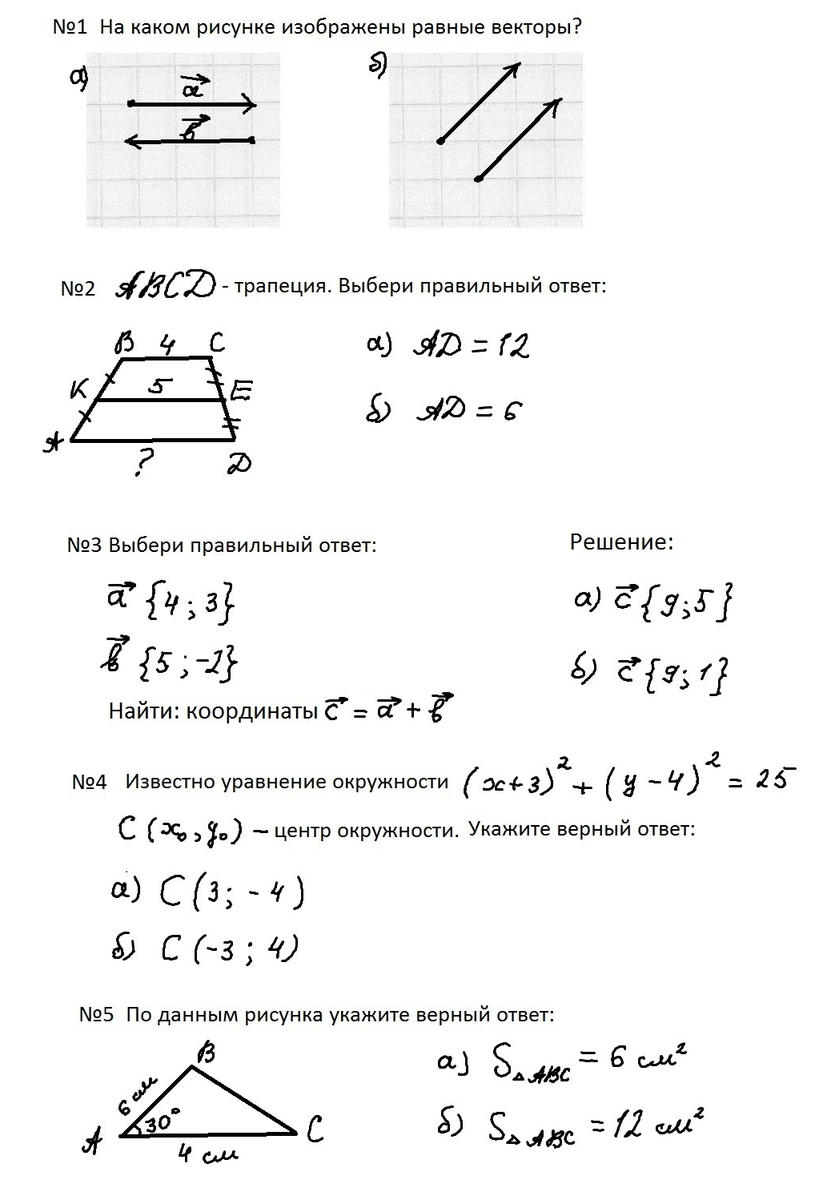 №1 На каком рисунке изображены равные векторы?
а) a⃗ b⃗ б)
№2 ABCD - трапеция. Выбери правильный ответ:
B 4 C
K 5 E
A ? D
а) AD = 12
б) AD = 6
№3 Выбери правильный ответ:
a⃗ {4 ; 3}
b⃗ {5 ; -2}
Найти: координаты c⃗ = a⃗ + b⃗
Решение:
а) c⃗ {9;5}
б) c⃗ {9;1}
№4 Известно уравнение окружности (x+3)² + (y - 4)² = 25
C (x₀, y₀) – центр окружности. Укажите верный ответ:
а) C (3; - 4)
б) C (-3 ; 4)
№5 По данным рисунка укажите верный ответ:
B
6 см
A 30° C
4 см
а) S▵ABC = 6 см²
б) S▵ABC = 12 см²